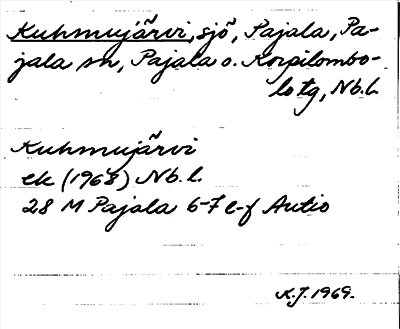 Kuhmujärvi, sjö, Pajala, Pa-
jala sn, Pajala o. Korpilombo-
lo tg, Nb.l.
Kuhmujärvi
ek (1968) Nb.l.
28 M Pajala 6-7 e-f Autio
K.J. 1969.